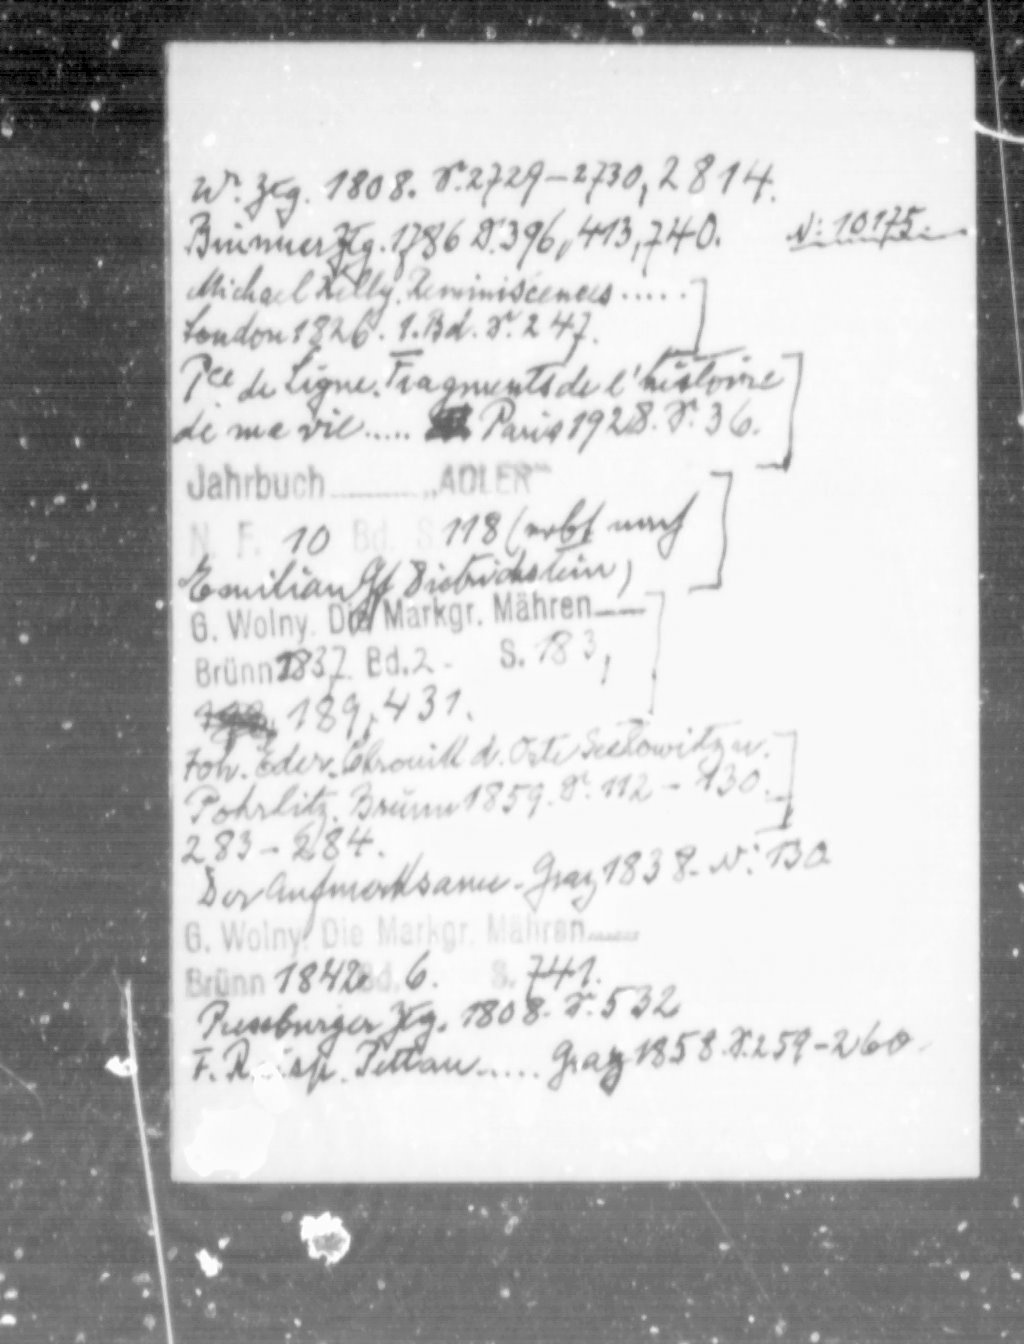 W. Ztg. 1808. S. 2729-2730, 2814.
Brünner Ztg. 1786 S. 396, 413, 740. N: 10175.
Michael Kelly. Reminiscences .....
London 1826. 1. Bd. S. 247.
Pce de Ligne. Fragments de l'histoire
de ma vie ..... Paris 1928. S. 36.
Jahrbuch „ADLER"
N. F. 10 Bd. S. 118 (erbt nach
Emilian Gf Dietrichstein)
G. Wolny. Die Markgr. Mähren
Brünn 1837 Bd. 2. S. 183,
189, 431.
Joh. Eder. Chronik d. Orte Seelowitz u.
Pohrlitz. Brünn 1859. S. 112-130.
283-284.
Der Aufmerksame. Graz 1838. N: 130
G. Wolny. Die Markgr. Mähren
Brünn 1842 Bd. 6. S. 741.
Pressburger Ztg. 1808. S. 532
F. Pettau ..... Graz 1858. S. 259-260